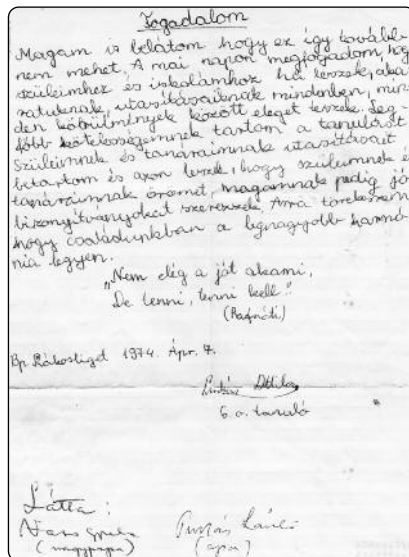 Fogadalom
Magam is belátom hogy ez így tovább
nem mehet. A mai napon megfogadom, hogy
szüleimhez és iskolámhoz hű leszek, aka-
ratuknak, utasításaiknak mindenben, min-
den körülmények között eleget teszek. Leg-
főbb kötelességemnek tartom a tanulást
szüleimnek és tanáraimnak utasításait
betartom és azon leszek, hogy szüleimnek és
tanáraimnak örömet, magamnak pedig jó
bizonyítványokat szerezzek. Arra törekszem
hogy családunkban a legnagyobb harmó-
nia legyen.
"Nem elég a jót akarni,
De tenni, tenni kell!"
Bp. Rákosliget 1974. Ápr. 7.
Attila
6. o. tanuló
Látta:
(nagypapa)
László
(apa)